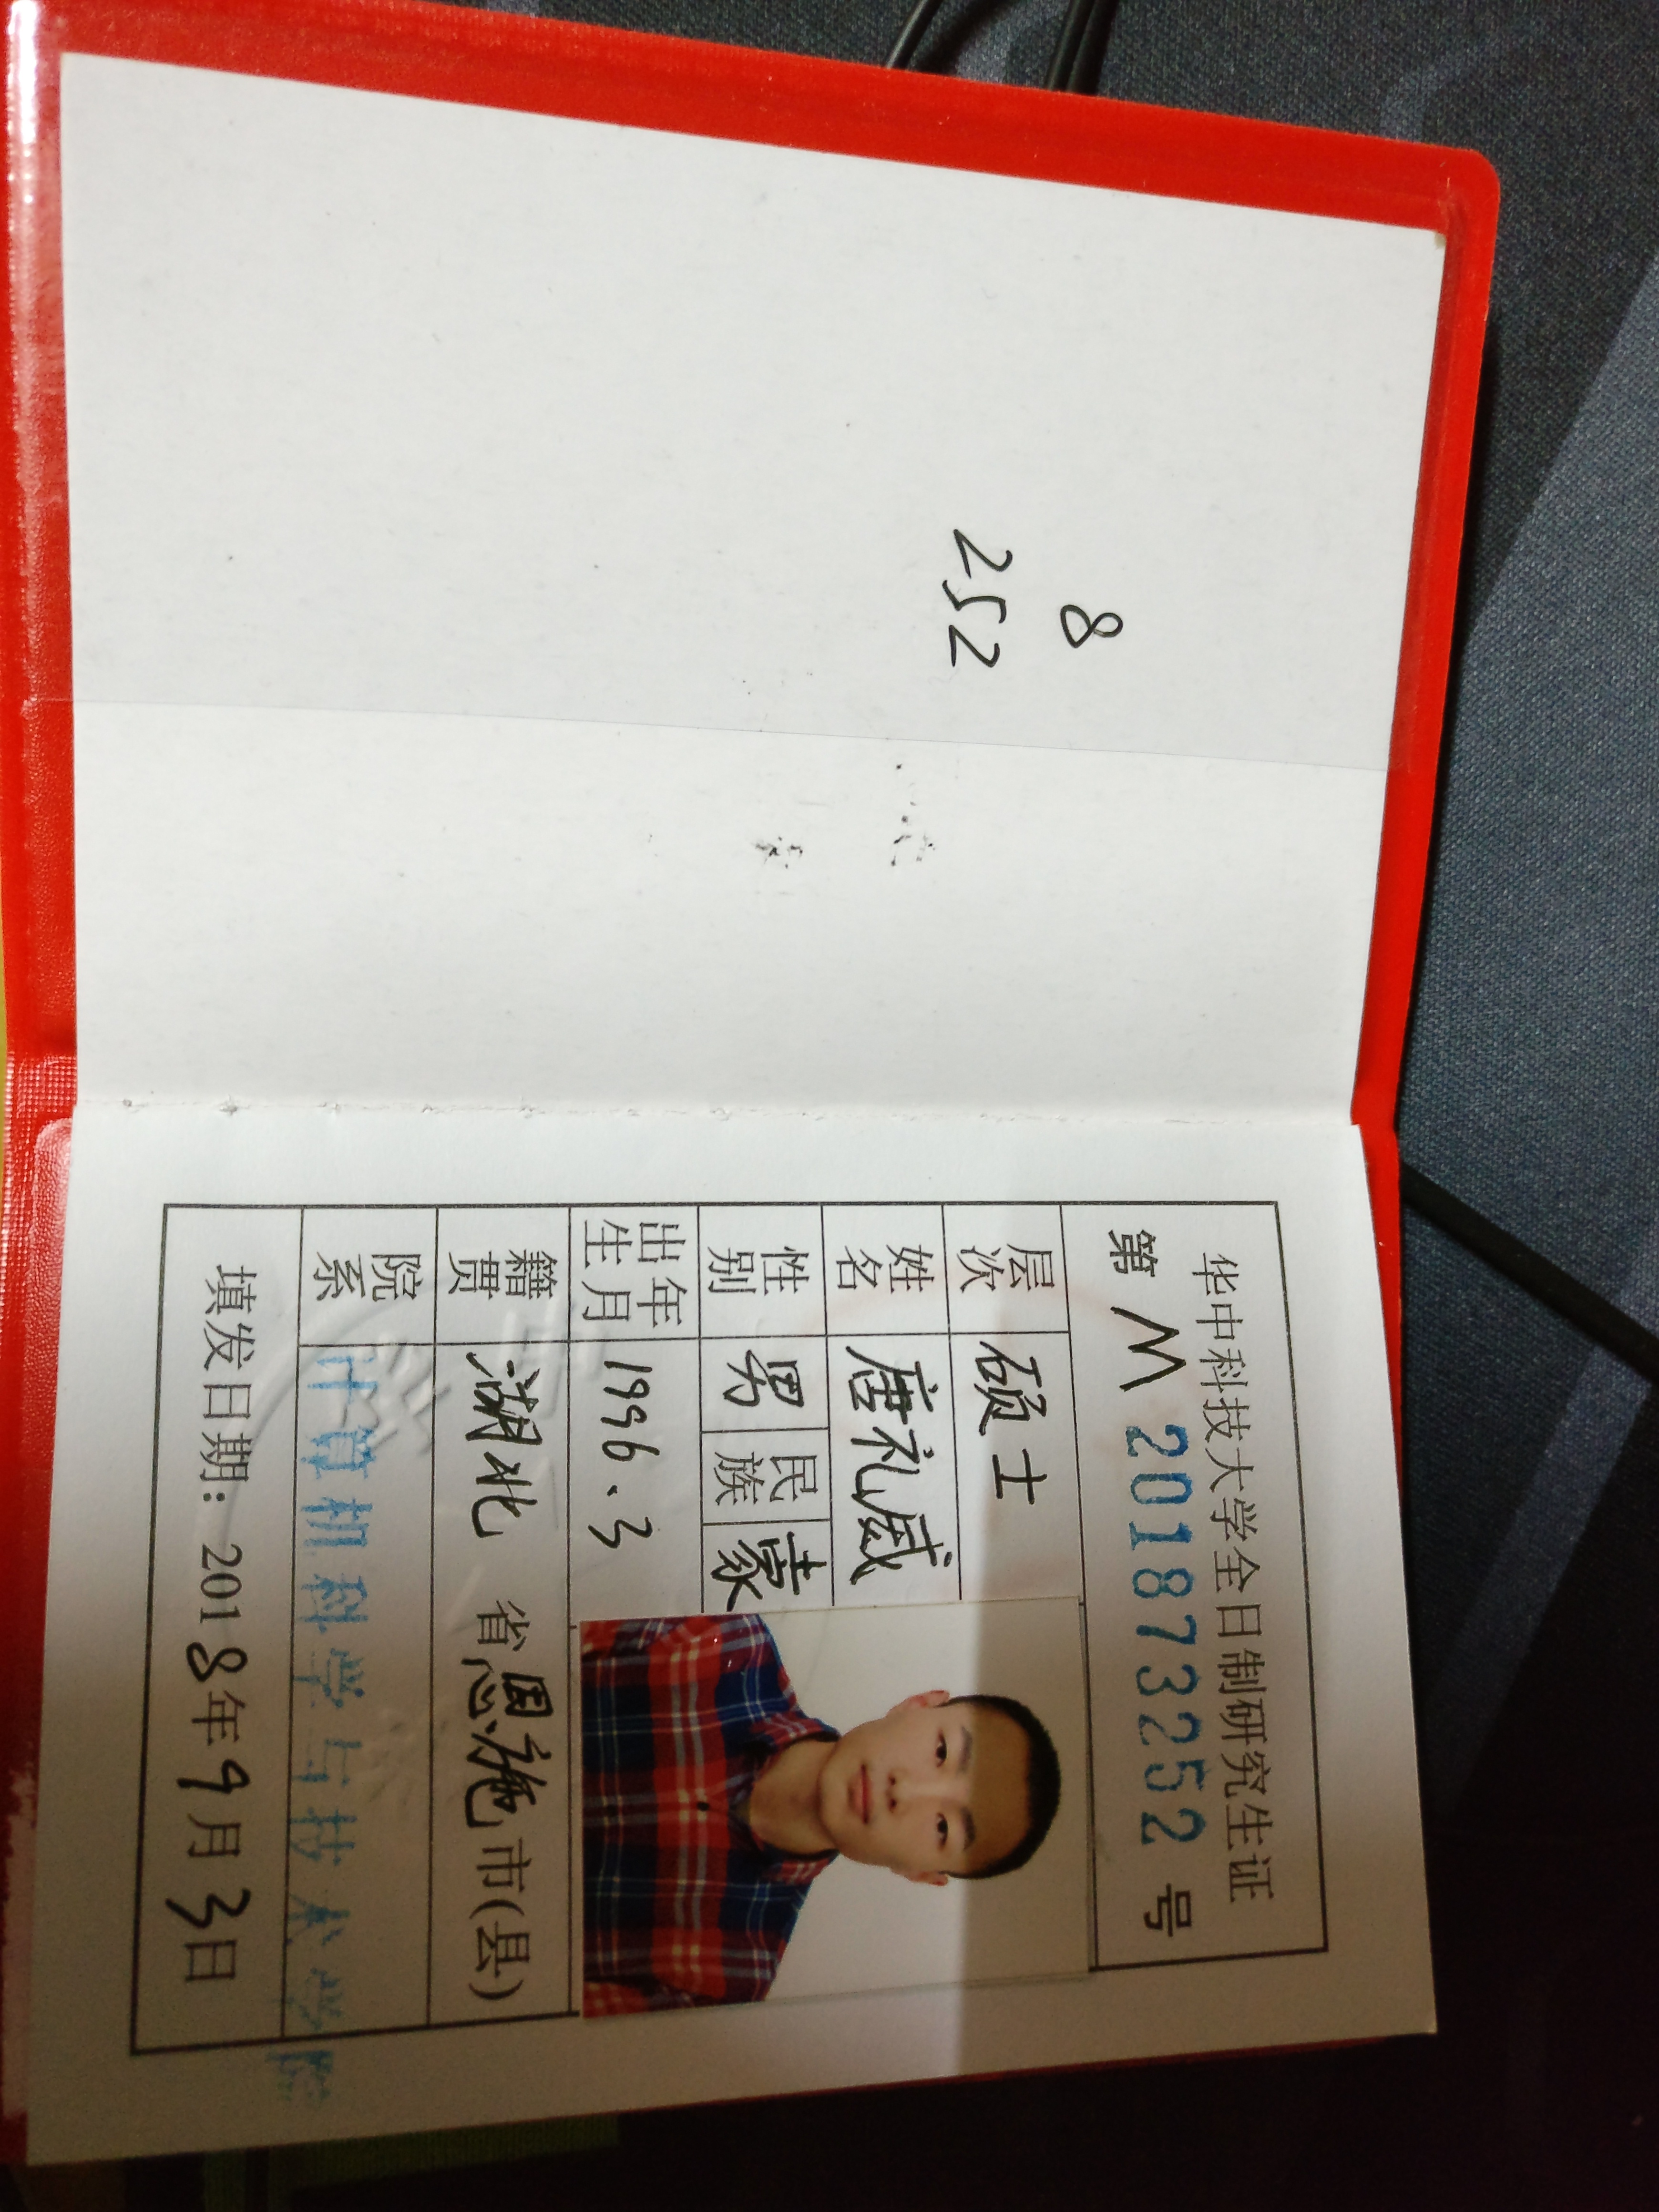 8
252
华中科技大学全日制研究生证
第 M 201873252 号
层次 硕士
姓名 唐礼威
性别 男 民族 蒙
出生年月 1996.3
籍贯 湖北 省 恩施 市(县)
院系 计算机科学与技术学院
填发日期: 2018年9月3日